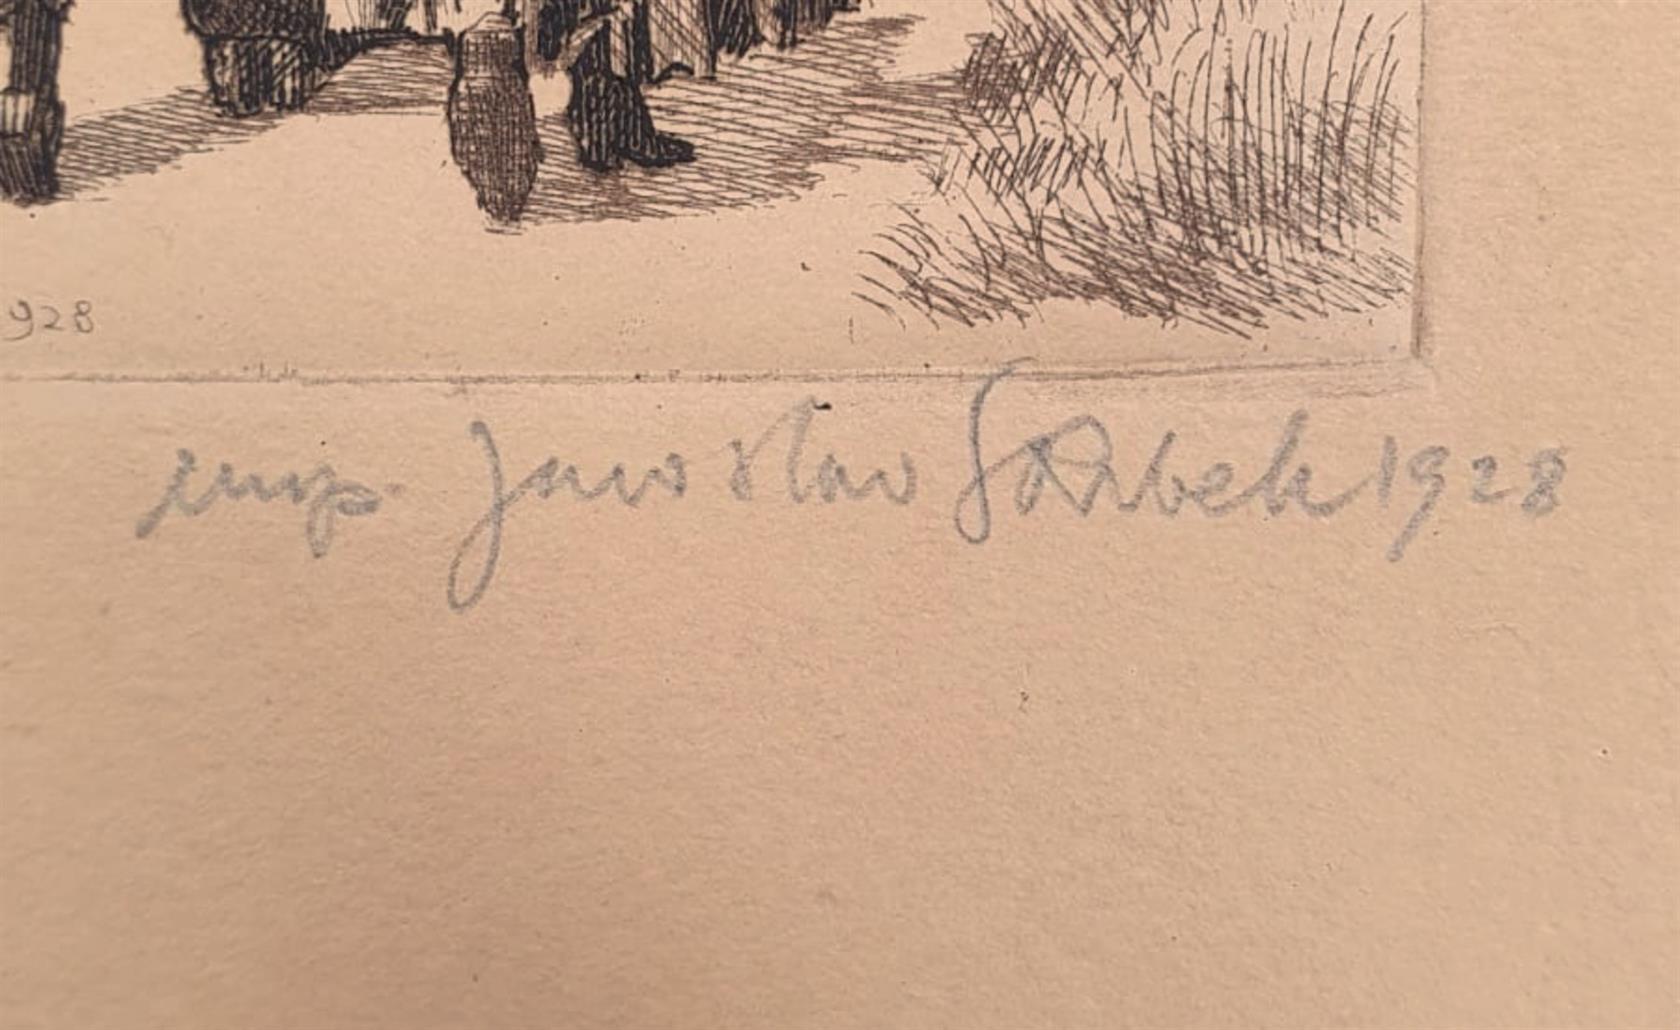 928
imp. Jaroslav Skrbek 1928